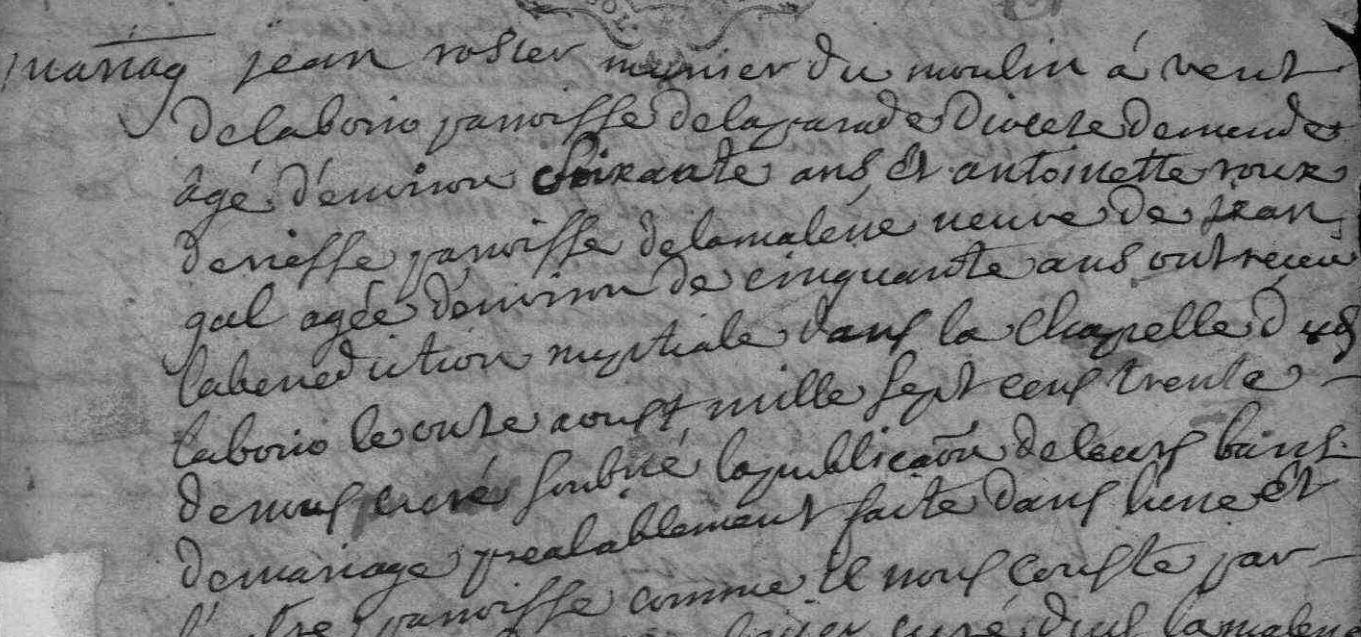 mariag jean rosier meunier du moulin á vent
delaborio parroisse delaparade diocese demende
âgé d'environ soixante ans et antoinette roux
denisse parroisse delamaléne veuve de jean
gal agée d'environ de cinquante ans ont receu
labenediction nuptiale dans la chapelle dud
laborio le onze aoust mille sept cens trente
demous curé soubné lapublicaon deleurs bans
demariage prealablement faite dans lune et
l'autre parroisse comme il nous conste par
curé dud lamalene